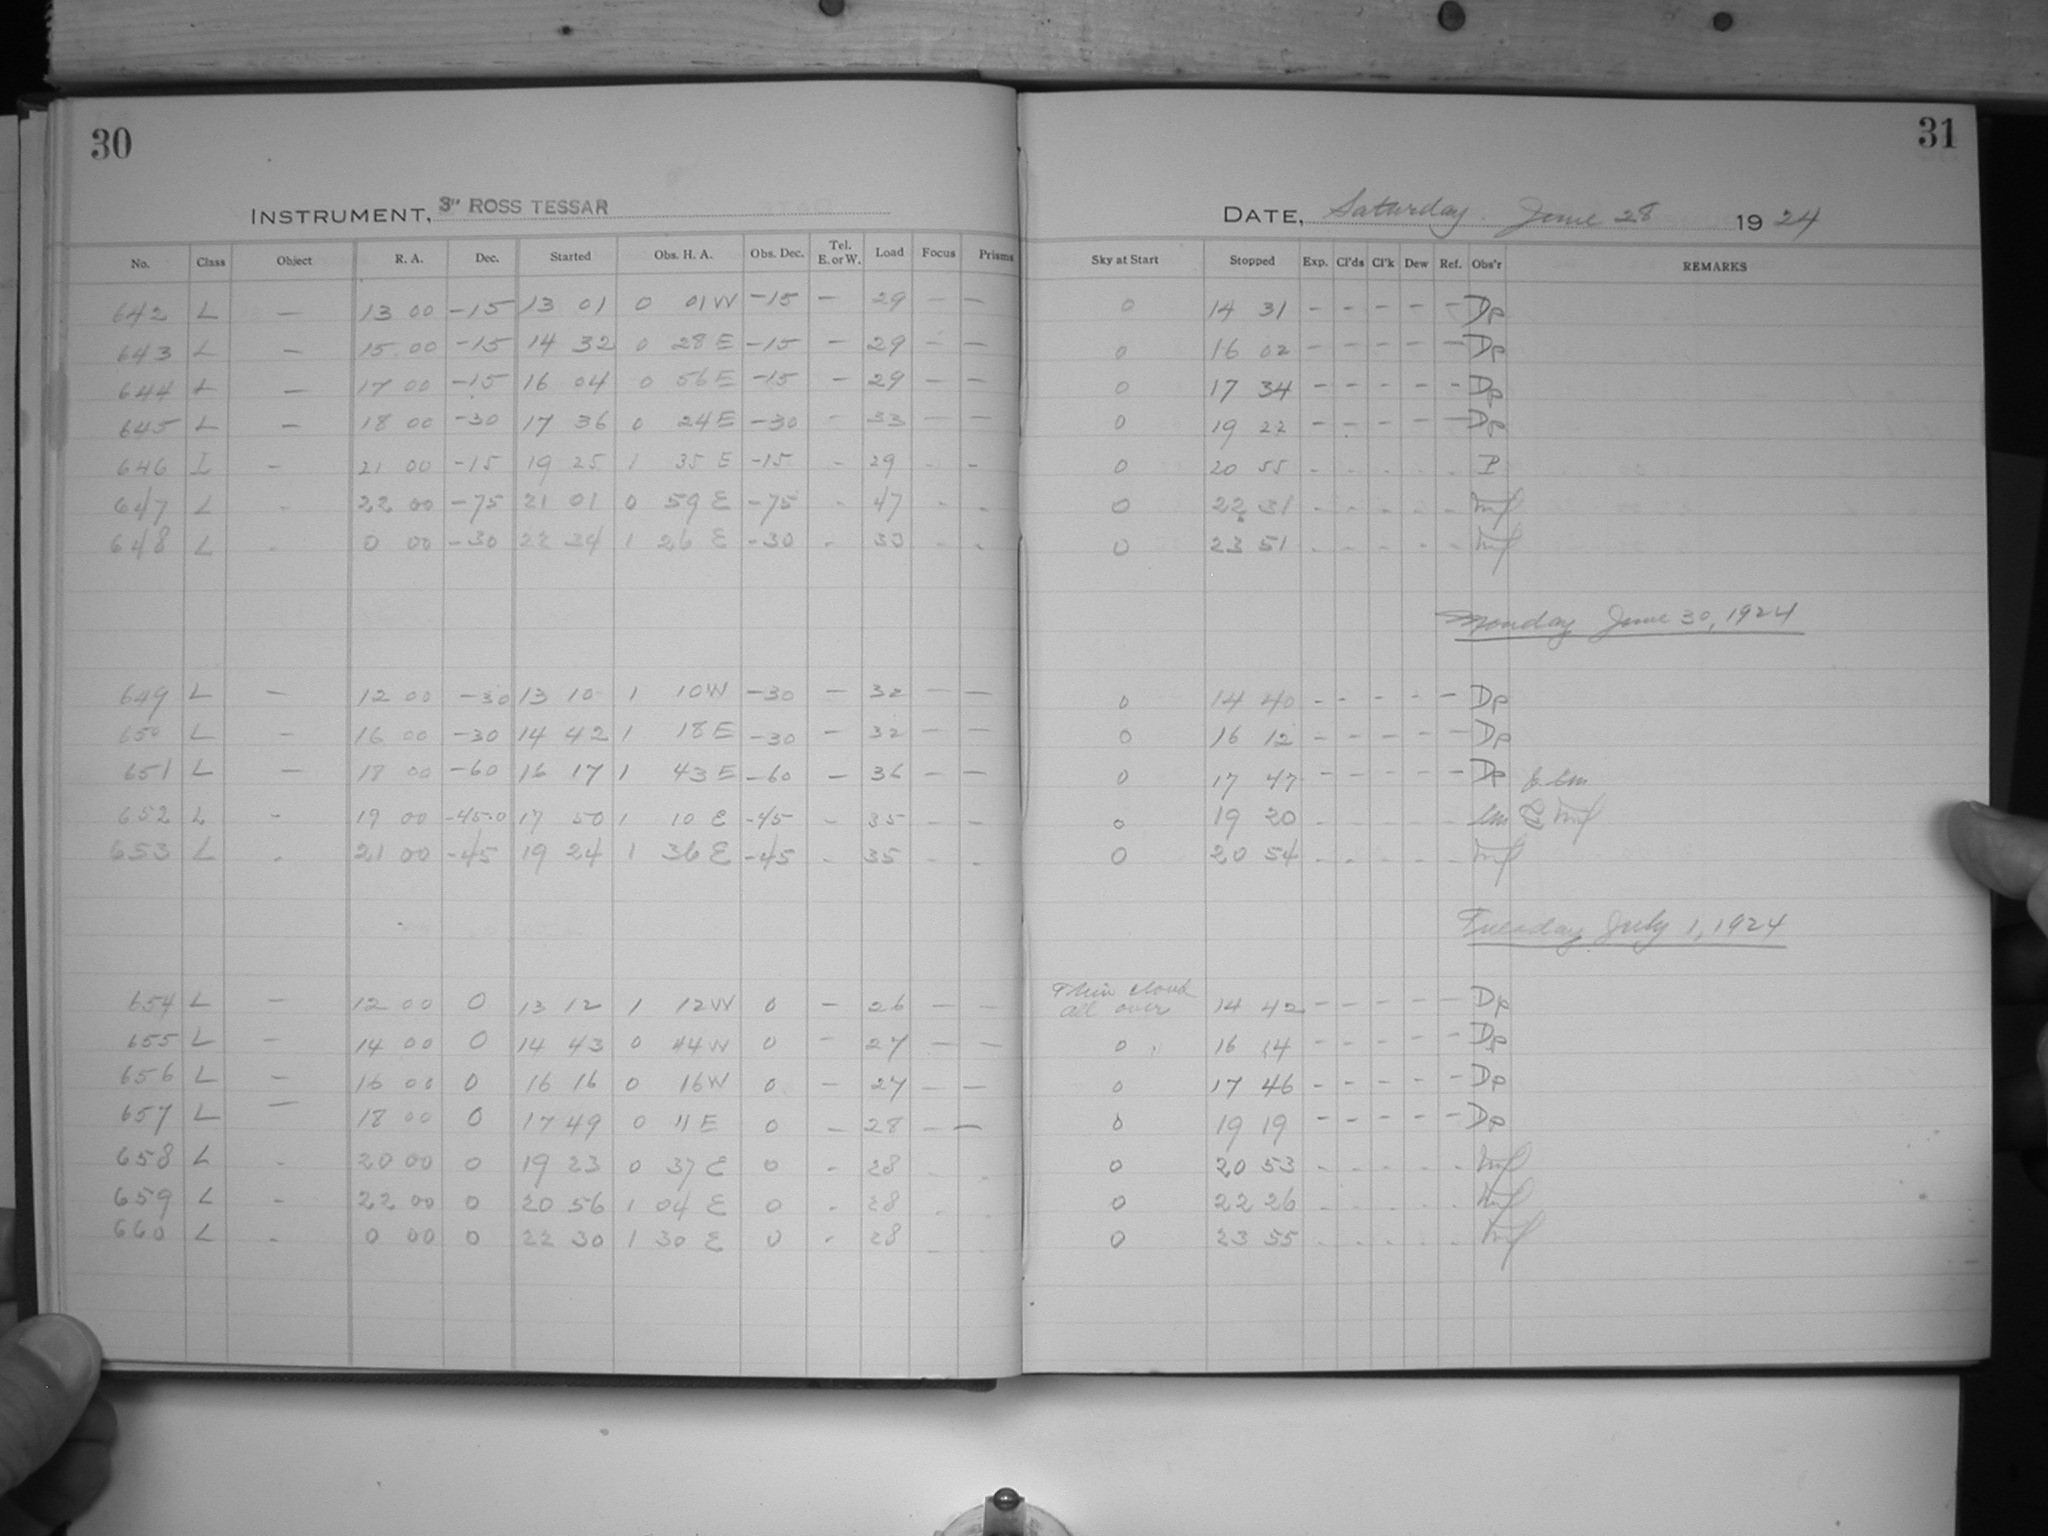 30
31
INSTRUMENT, 3" ROSS TESSAR
DATE, Saturday June 28 1924
No. Class Object R. A. Dec. Started Obs. H. A. Obs. Dec. Tel. E. or W. Load Focus Prisms Sky at Start Stopped Exp. Cl'ds Cl'k Dew Ref. Obs'r REMARKS
642 L — 13 00 -15 13 01 0 01 W -15 - 29 - - 0 14 31 - - - - - Dp
643 L — 15 00 -15 14 32 0 28 E -15 - 29 - - 0 16 02 - - - - - Dp
644 L — 17 00 -15 16 04 0 56 E -15 - 29 - - 0 17 34 - - - - - Dp
645 L — 18 00 -30 17 36 0 24 E -30 - 33 - - 0 19 22 - - - - - Dp
646 I - 21 00 -15 19 25 1 35 E -15 - 29 - - 0 20 55 - - - - - P
647 L - 22 00 -75 21 01 0 59 E -75 - 47 - - 0 22 31 - - - - -
648 L - 0 00 -30 22 34 1 26 E -30 - 33 - - 0 23 51 - - - - -
Monday June 30, 1924
649 L — 12 00 -30 13 10 1 10 W -30 - 32 - - 0 14 40 - - - - - Dp
650 L — 16 00 -30 14 42 1 18 E -30 - 32 - - 0 16 12 - - - - - Dp
651 L — 18 00 -60 16 17 1 43 E -60 - 36 - - 0 17 47 - - - - - Dp
652 L - 19 00 -45 0 17 50 1 10 E -45 - 35 - - 0 19 20 - - - - -
653 L - 21 00 -45 19 24 1 36 E -45 - 35 - - 0 20 54 - - - - -
Tuesday July 1, 1924
654 L — 12 00 0 13 12 1 12 W 0 - 26 - - Thin cloud all over 14 42 - - - - - Dp
655 L — 14 00 0 14 43 0 44 W 0 - 27 - - 0 16 14 - - - - - Dp
656 L — 16 00 0 16 16 0 16 W 0 - 27 - - 0 17 46 - - - - - Dp
657 L — 18 00 0 17 49 0 11 E 0 - 28 - - 0 19 19 - - - - - Dp
658 L - 20 00 0 19 23 0 37 E 0 - 28 - - 0 20 53 - - - - -
659 L - 22 00 0 20 56 1 04 E 0 - 28 - - 0 22 26 - - - - -
660 L - 0 00 0 22 30 1 30 E 0 - 28 - - 0 23 55 - - - - -